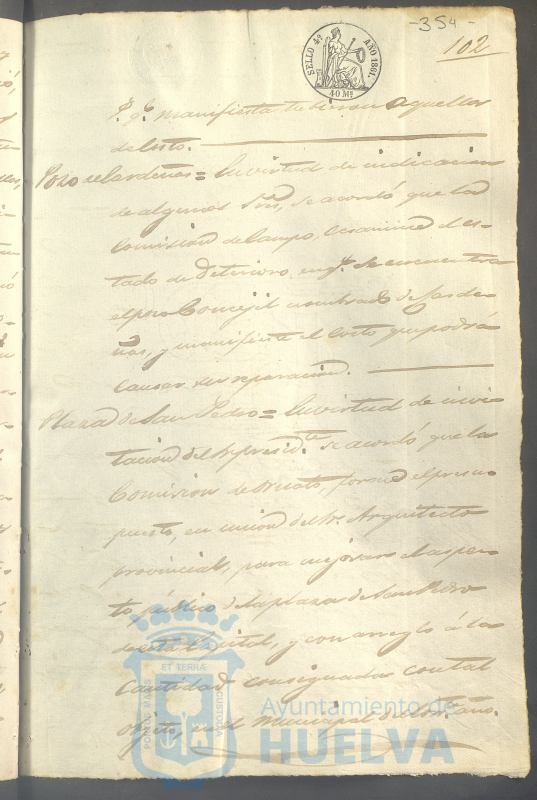 -354-
102
SELLO 4º AÑO 1861.
40 Ms
P. q.e manifiesta tubieron aquellas
de listo.
Pozo de Sardeñas = En virtud de indicacion
de algunos Sres, se acordó que la
Comision de Campo, ecsamine el es-
tado de deterioro, en q.e se encuentra
el pozo Concejil nombrado de Sarde-
ñas, y manifieste el costo que podrá
causar su reparacion.
Plaza de San Pedro = En virtud de invi-
tacion del Sr presid.te se acordó que la
Comision de Ornato, forme el presu-
puesto, en union del Sr. Arquitecto
provincial, para mejorar el aspec-
to público de la plaza de San Pedro
de esta Capital, y con arreglo á la
Cantidad consignada con tal
objeto, en el Municipal de este año.
PORTUS MARIS ET TERRÆ CUSTODIA
Ayuntamiento de
HUELVA